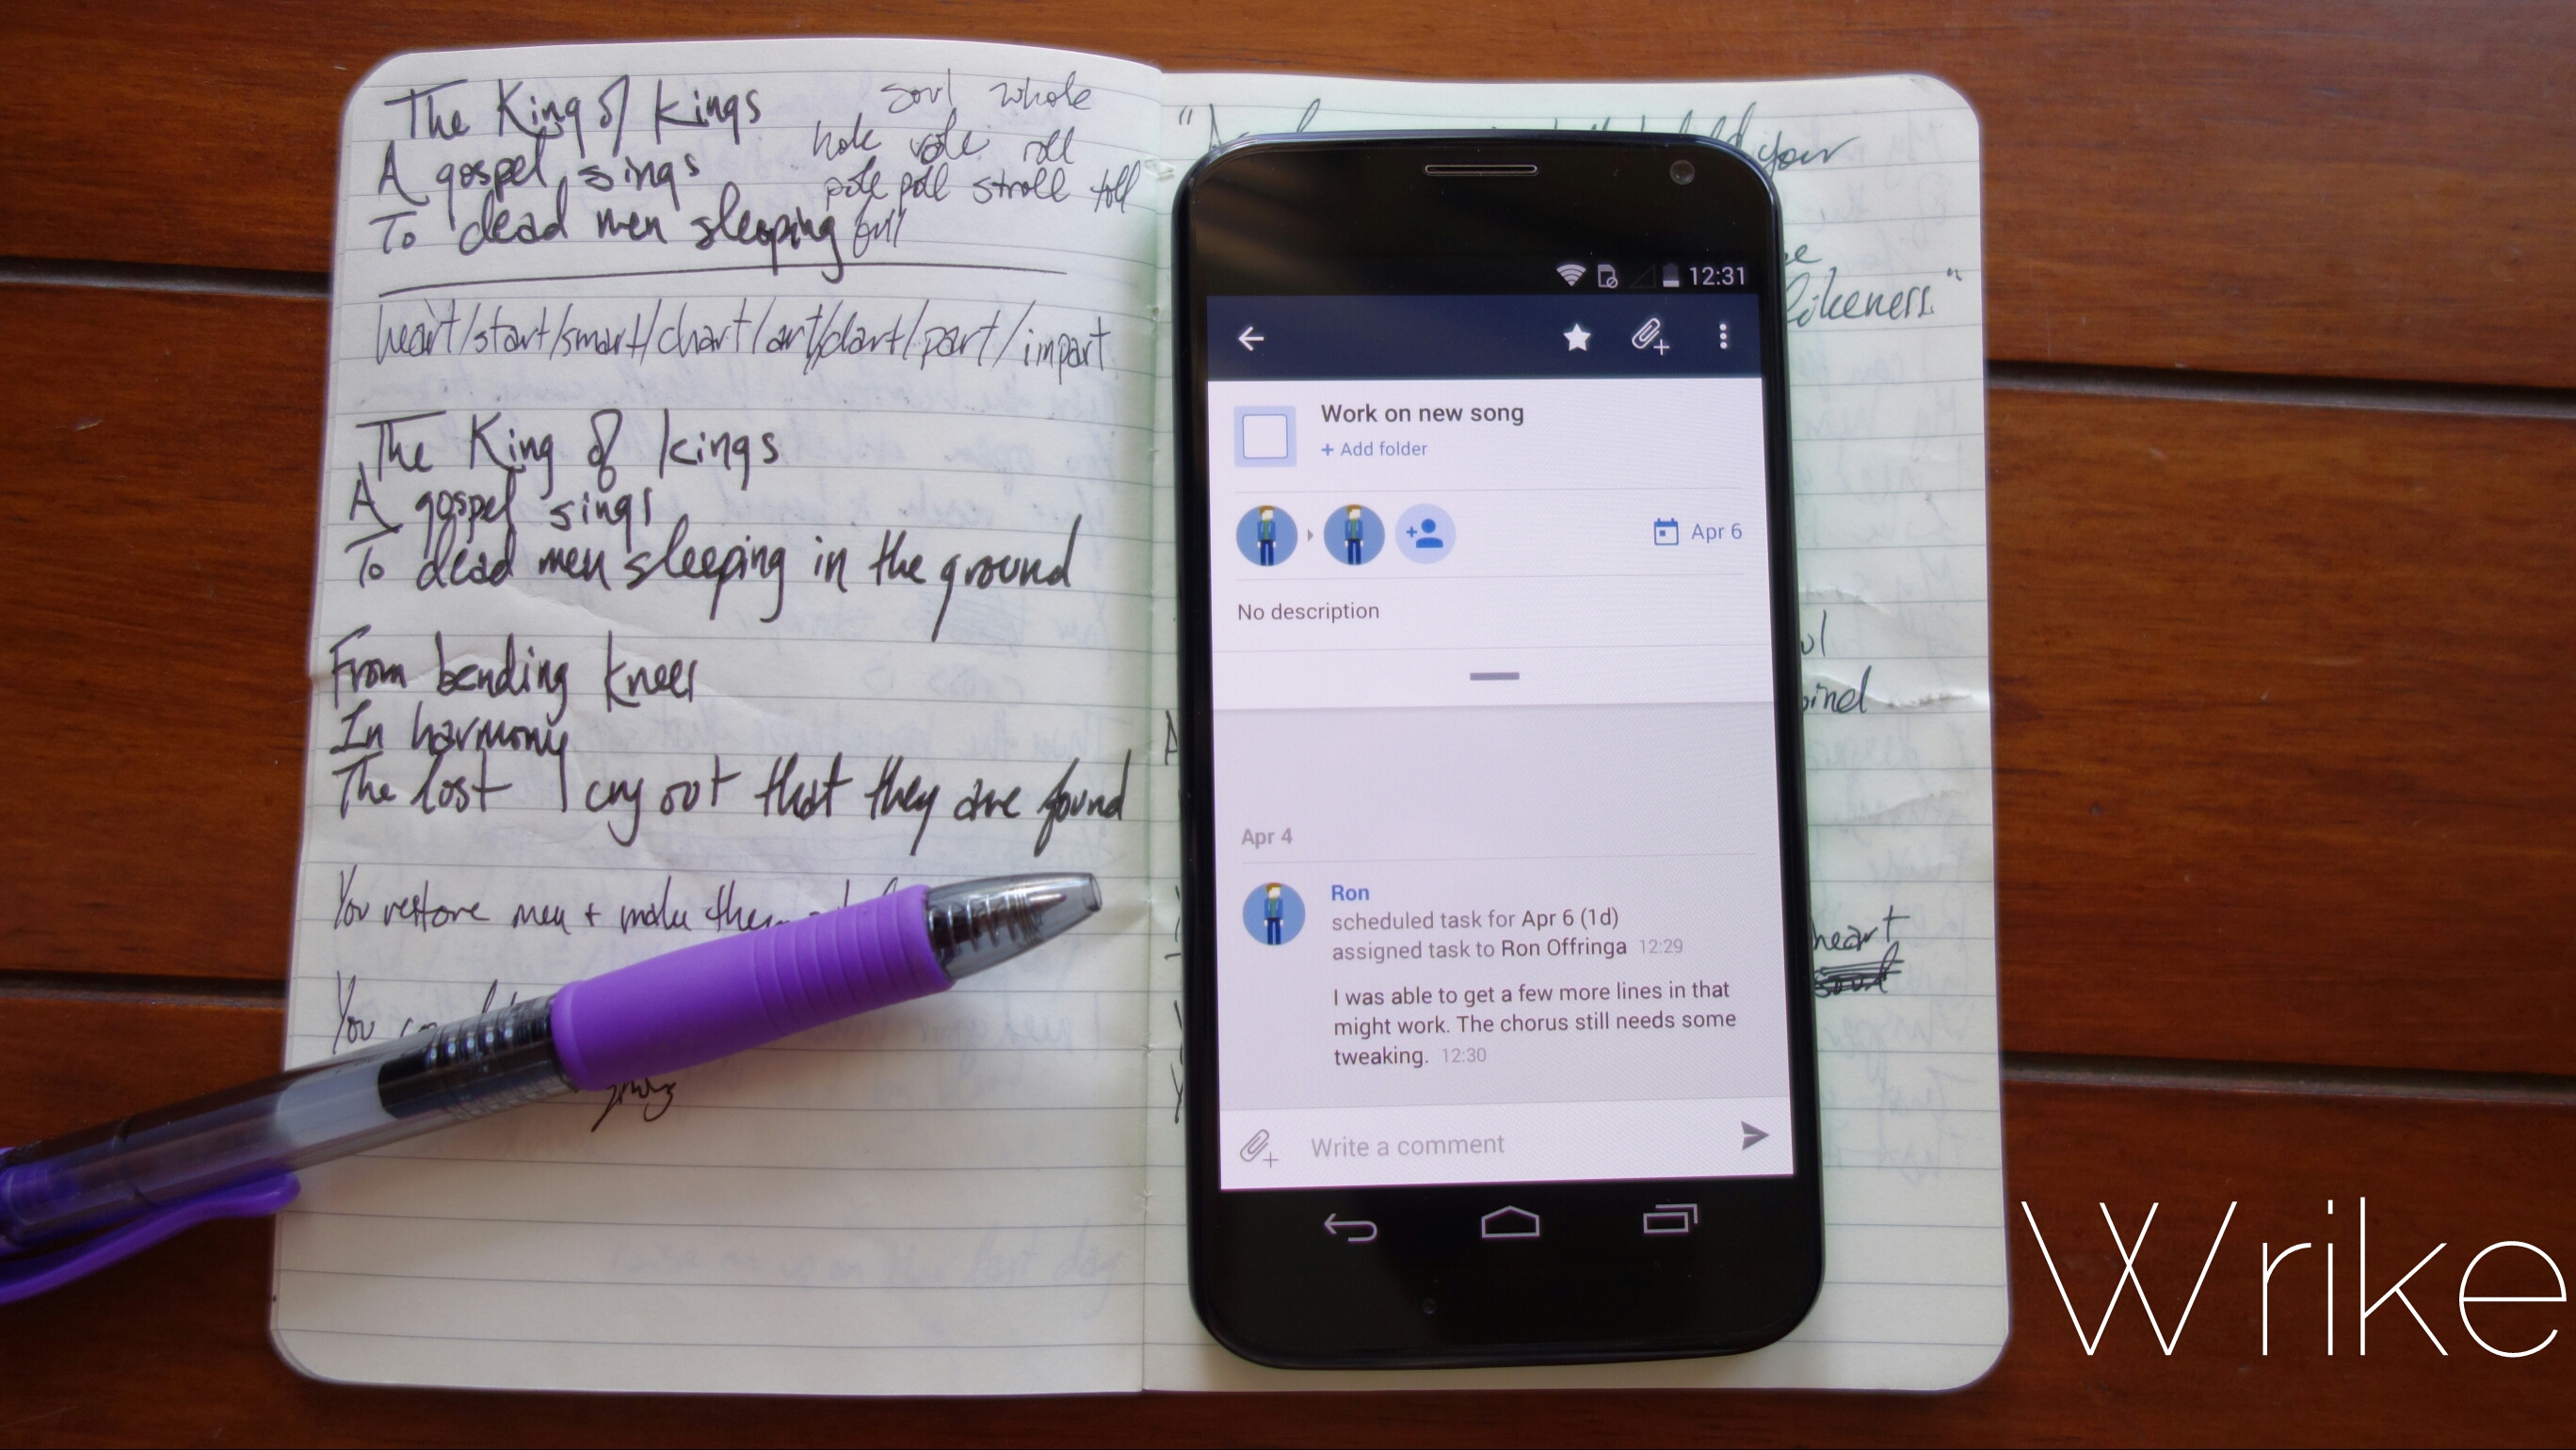 The King of kings
A gospel sings
To dead men sleeping
soul whole
hole role roll
pole poll stroll toll
full
heart/start/smart/chart/art/dart/part/impart
The King of kings
A gospel sings
To dead men sleeping in the ground
From bending knees
In harmony
The lost I cry out that they are found
You restore men + make them
You
your
likeness."
heart
soul
12:31
Work on new song
+ Add folder
Apr 6
No description
Apr 4
Ron
scheduled task for Apr 6 (1d)
assigned task to Ron Offringa 12:29
I was able to get a few more lines in that
might work. The chorus still needs some
tweaking. 12:30
Write a comment
Wrike